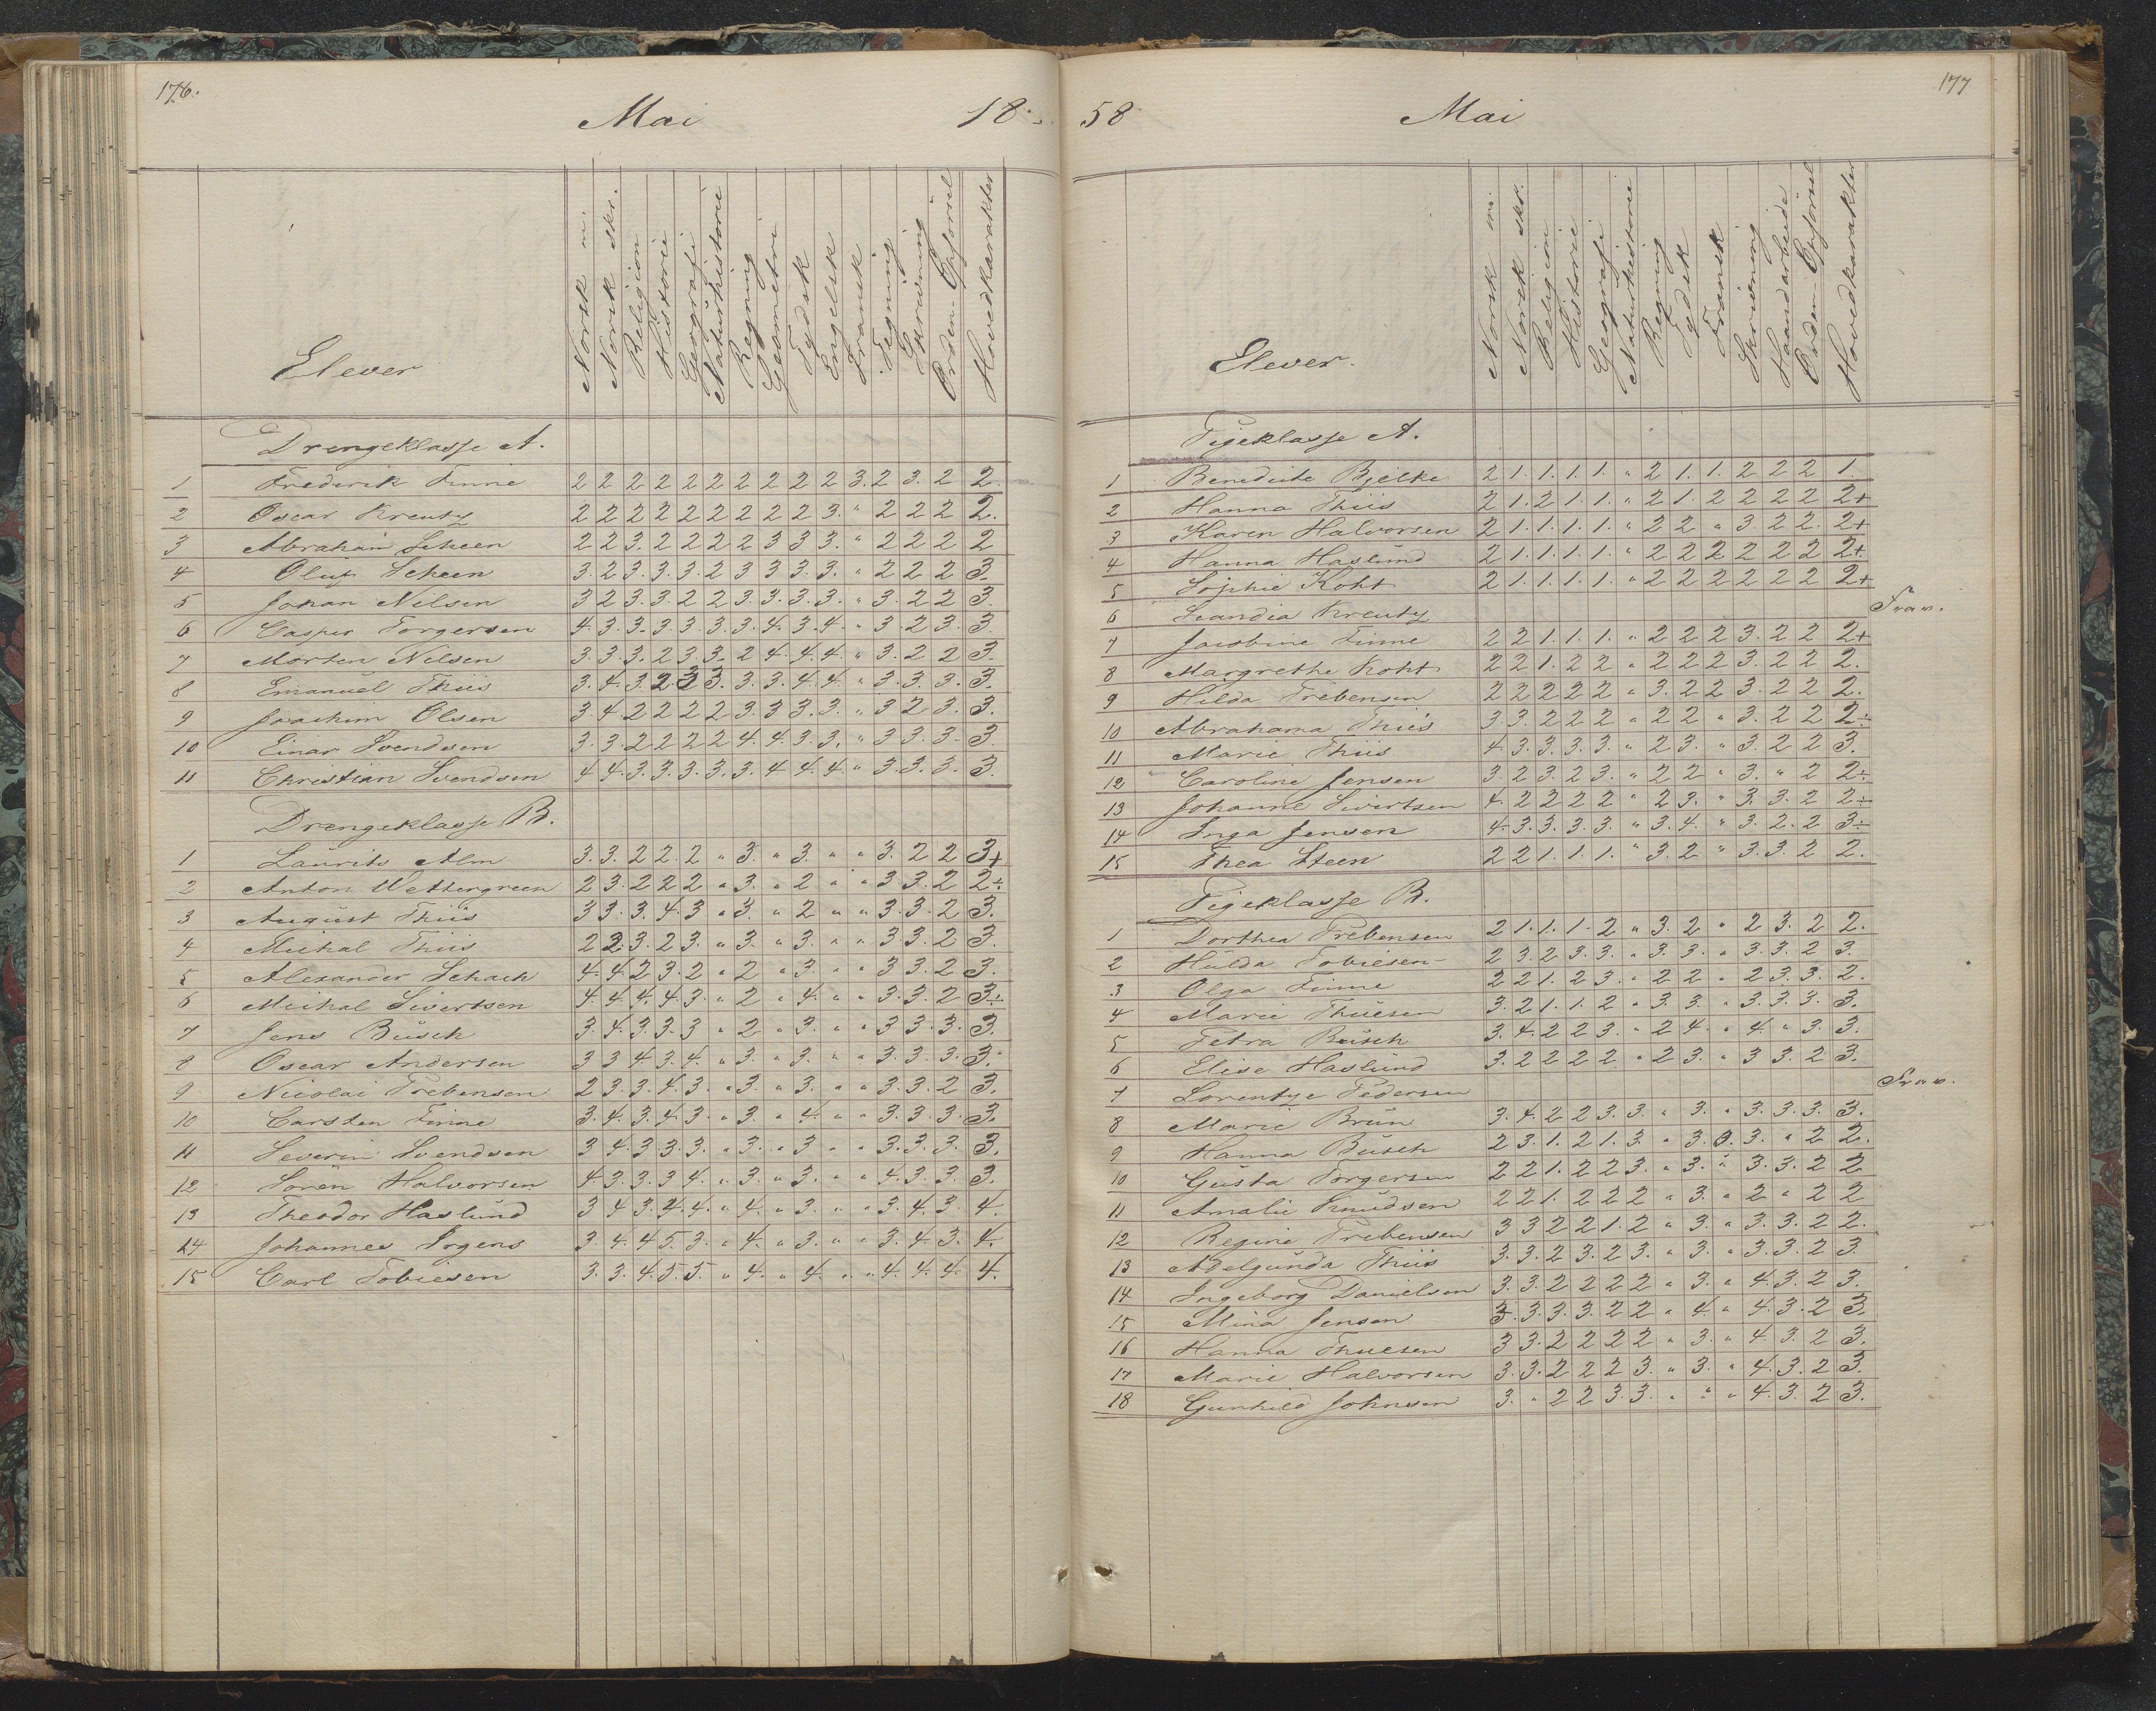 176.
Mai 18
Elever
Norsk m.
Norsk skr.
Religion
Historie
Geografi
Naturhistorie
Regning
Geometri
Tydsk
Engelsk
Fransk
Tegning
Skrivning
Orden-Opførsel
Hovedkarakter
Drengeklasse A.
1 Frederik Finne 2 2 2 2 2 2 2 2 2 2 3. 2 3. 2 2.
2 Oscar Kreutz 2 2 2 2 2 2 2 2 2 3. " 2 2 2 2.
3 Abraham Scheen 2 2 3. 2 2 2 2 3 3 3. " 2 2 2 2
4 Oluf Scheen 3. 2 3. 3. 3. 2 3 3 3. 3. " 2 2 2 3.
5 Johan Nilsen 3 2 3. 3. 2 2 3. 3. 3. 3. " 3. 2 2 3.
6 Casper Torgersen 4. 3. 3. 3. 3. 3. 3. 4. 3. 4. " 3. 2 3. 3.
7 Morten Nilsen 3. 3. 3. 2 3 3. 2 4. 4. 4. " 3. 2 2 3.
8 Emanuel Thiis 3. 4. 3. 2 2 3. 3. 3. 4. 4. " 3. 3. 3. 3.
9 Joachim Olsen 3. 4. 2 2 2 2 3. 3 3. 3. " 3 2 3. 3.
10 Einar Svendsen 3. 3. 2 2 2 2 4. 4. 3. 3. " 3 3. 3. 3.
11 Christian Svendsen 4 4. 3. 3. 3. 3. 3. 4 4. 4. " 3. 3. 3. 3.
Drengeklasse B.
1 Laurits Alm 3. 3. 2 2. 2 " 3. " 3. " " 3. 2 2 3+
2 Anton Wettergreen 2 3. 2 2 2 " 3. " 2 " " 3. 3. 2 2÷
3 August Thiis 3 3. 3. 4. 3 " 3. " 2 " " 3. 3. 2 3.
4 Michal Thiis 2 2. 3. 2 3. " 3. " 3. " " 3 3. 2 3.
5 Alexander Schach 4. 4. 2 3. 2 " 2 " 3. " " 3 3. 2 3.
6 Michal Sivertsen 4. 4. 4. 4 3. " 2 " 4. " " 3. 3. 2 3÷
7 Jens Büsch 3. 4. 3. 3. 3 " 2 " 3. " " 3 3. 3. 3.
8 Oscar Andersen 3 3 4. 3. 4. " 3. " 3. " " 3. 3. 3. 3.
9 Nicolai Trebensen 2 3. 3. 4. 3. " 3. " 3. " " 3. 3. 2 3.
10 Carsten Finne 3. 4. 3. 4. 3. " 3. " 4. " " 3. 3. 3. 3.
11 Severin Svendsen 3 4. 3 3. 3. " 3. " 3 " " 3. 3. 3. 3.
12 Sören Halvorsen 4. 3. 3. 3 4. " 3. " 3. " " 4. 3. 3. 3.
13 Theodor Haslund 3 4 3. 4. 4. " 4. " 3. " " 3. 4. 3. 4.
14 Johannes Irgens 3. 4. 4 5. 3. " 4. " 3. " " 3. 4. 3. 4.
15 Carl Tobiesen 3. 3. 4. 5. 5. " 4. " 4. " " 4. 4. 4. 4.
177
58 Mai
Elever.
Norsk m.
Norsk skr.
Religion
Historie
Geografi
Naturhistorie
Regning
Tydsk
Fransk
Skrivning
Haandarbeide
Orden-Opførsel
Hovedkarakter
Pigeklasse A.
1 Benedicte Bjelke 2 1. 1. 1. 1. " 2 1. 1. 2 2 2 1
2 Hanna Thiis 2 1. 2 1. 1. " 2 1. 2 2 2 2 2+
3 Karen Halvorsen 2 1. 1. 1. 1. " 2 2 " 3. 2 2. 2+
4 Hanna Haslund 2 1. 1. 1. 1. " 2 2 2 2 2 2 2+
5 Sophie Koht 2 1. 1. 1. 1. " 2 2 2 2 2 2 2+
6 Scandia Kreutz Frav.
7 Jacobine Finne 2 2 1. 1. 1. " 2 2 2 3. 2 2 2+
8 Margrethe Koht 2 2 1. 2 2 " 2 2 2 3. 2 2 2.
9 Hilda Trebensen 2 2 2 2 2 " 3. 2 2 3. 2 2 2.
10 Abrahama Thiis 3. 3. 2 2 2 " 2 2 " 3. 2 2 2÷
11 Marie Thiis 4. 3. 3. 3. 3. " 2 3. " 3. 2 2 3.
12 Caroline Jensen 3. 2 3. 2 3. " 2 2 " 3. " 2 2÷
13 Johanne Sivertsen 4. 2 2 2 2 " 2 3. " 3. 3. 2 2÷
14 Inga Jensen 4. 3. 3. 3. 3. " 3. 4. " 3. 2. 2 3÷
15 Thea Steen 2 2 1. 1. 1. " 3. 2 " 3. 3. 2 2.
Pigeklasse B.
1 Dorthea Trebensen 2 1. 1. 1. 2 " 3. 2 " 2 3. 2 2.
2 Hulda Tobiesen 2 3. 2 3. 3. " 3. 3. " 3. 3. 2 3.
3 Olga Finne 2 2 1. 2 3. " 2 2 " 2 3. 3. 2.
4 Marie Thuesen 3. 2 1. 1. 2 " 3. 3. " 3. 3. 3. 3.
5 Petra Büsch 3. 4. 2 2 3. " 2 4. " 4. " 3. 3.
6 Elise Haslund 3. 2 2 2 2 " 2 3. " 3 3. 2 3.
7 Lorentze Pedersen Frav.
8 Marie Brün 3. 4. 2 2 3. 3. " 3. " 3. 3. 3. 3.
9 Hanna Büsch 2 3. 1. 2 1. 3. " 3. 3. " 2 2.
10 Gusta Torgersen 2 2 1. 2 2 3. " 3. " 3. 3. 2 2
11 Amalie Knudsen 2 2 1. 2 2 2 " 3. " 2 " 2 2
12 Regine Trebensen 3 3 2 2 1. 2 " 3. " 3. 3. 2 2.
13 Adelgunda Thiis 3. 3. 2 3. 2 3. " 3. " 3. 3. 2 3.
14 Ingeborg Danielsen 3. 3. 2 2 2 2 " 3. " 4. 3. 2 3.
15 Mina Jensen 3. 3. 3. 3. 2 2 " 4. " 4. 3. 2 3.
16 Hanna Thuesen 3 3. 2 2 2 2 " 3. " 4 3. 2 3.
17 Marie Halvorsen 3. 3. 2 2 2 3. " 3. " 4. 3. 2 3.
18 Gunhild Johnsen 3. " 2 2 3. 3. " " " 4. 3. 2 3.